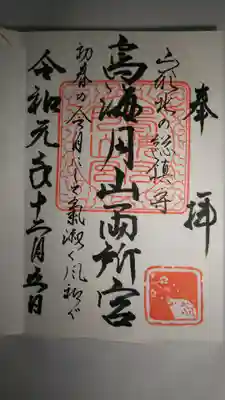 奉拝
山形北の総鎮守
鳥海月山両所宮
初春の令月にして氣淑く風和ぎ
令和元年十二月五日